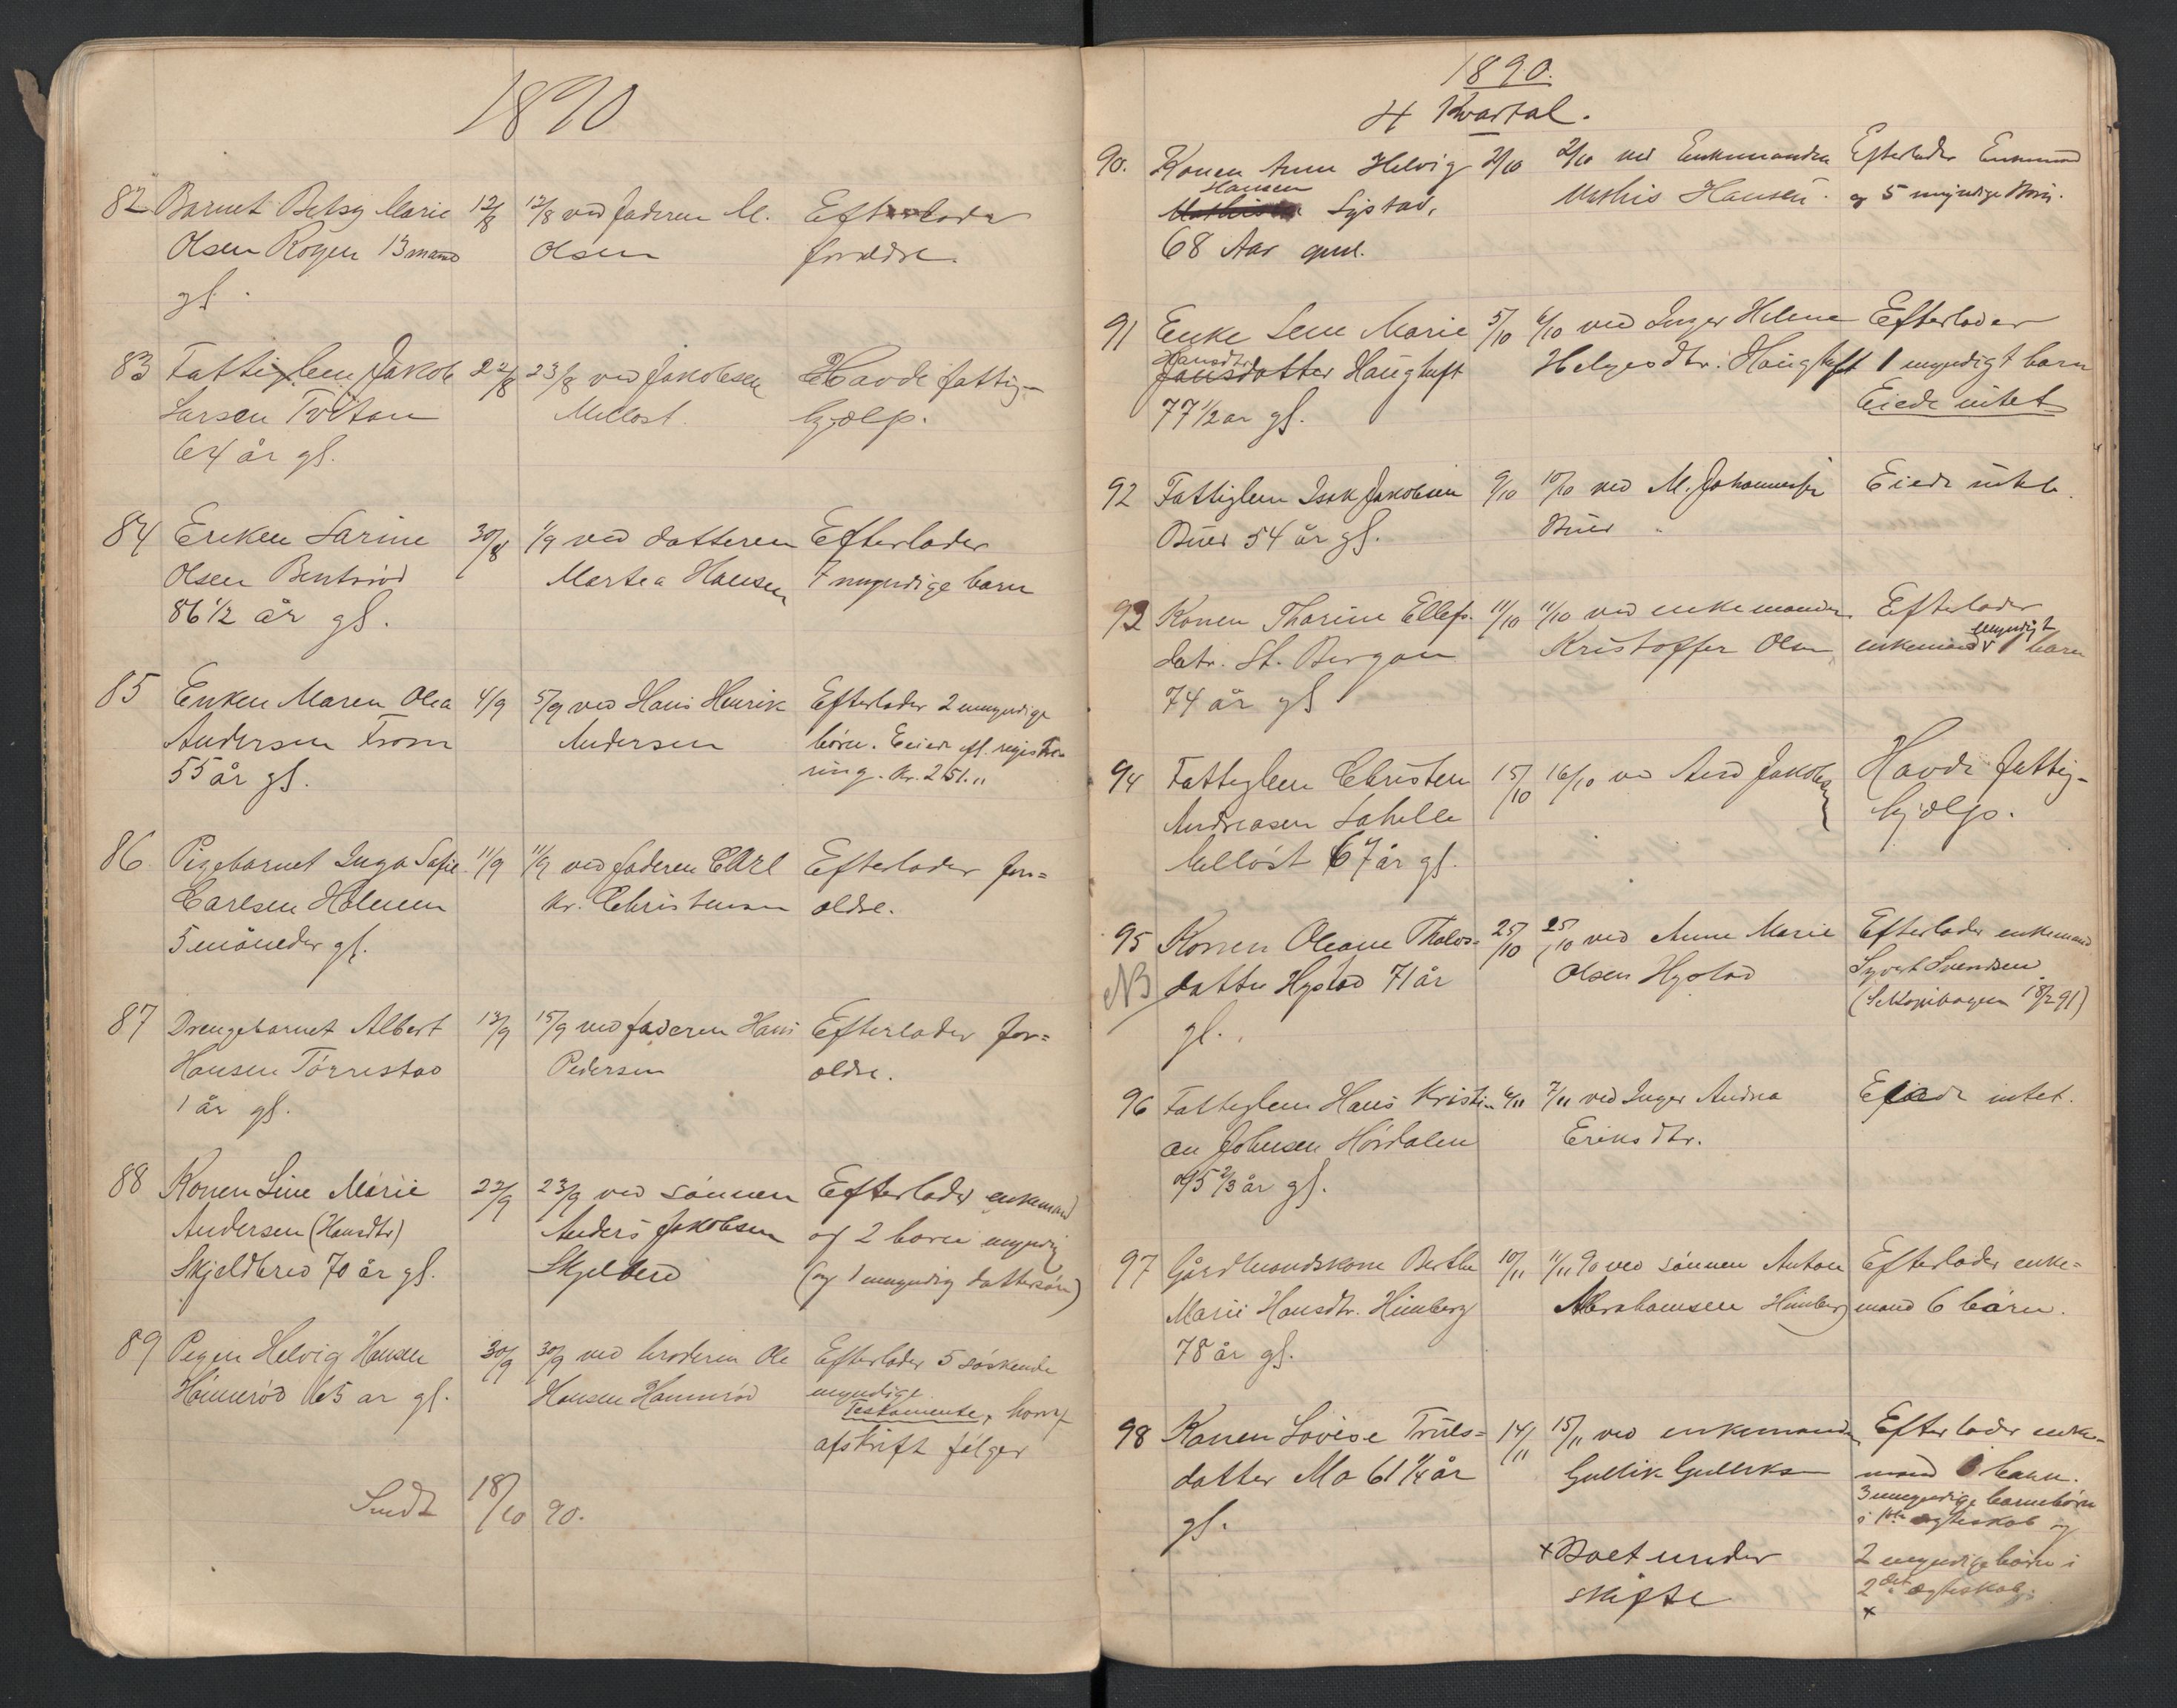 1890
82 Barnet Betsy Marie 12/8 12/8 ved faderen M. Efterlader
Olsen Rogen 13 maan Olsen forældre.
gl.
83 Fattiglem Jakob 22/8 23/8 ved Jakobsen Havde fattig-
Larsen Tvitan Melløst. hjælp.
64 år gl.
84 Enken Sarine 30/8 1/9 ved datteren Efterlader
Olsen Bentsrød Martea Hansen 7 myndige barn
86 1/2 år gl.
85 Enken Maren Olea 4/9 5/9 ved Hans Henrik Efterlader 2 umyndige
Andersen From Andersen børn. Eiede efl. registre-
55 år gl. ring. Kr. 251.„
86 Pigebarnet Inga Sofie 11/9 11/9 ved faderen Carl Efterlader for=
Carlsen Holmen Kr. Christensen ældre.
5 måneder gl.
87 Drengebarnet Albert 13/9 15/9 ved faderen Hans Efterlader for=
Hansen Tørrestad Pedersen ældre.
1 år gl.
88 Konen Line Marie 22/9 23/9 ved sønnen Efterlader enkemand
Andersen (Hansdtr) Anders Jakobsen og 2 barn myndig
Skjeldbred 70 år gl. Skjelbred (og 1 umyndig dattersøn)
89 Pigen Helvig Hansen 30/9 30/9 ved broderen Ole Efterlader 5 søskende
Hannerød 65 ar gl. Hansen Hannerød myndige.
Testamente, hvoraf
afskrift følger
Sendt 18/10 90.
1890.
4 Kvartal.
90. Konen Anne Helvig 2/10 2/10 ved Enkemanden Efterlader Enkemand
Hansen
Systad, Mathis Hansen. og 5 myndige Børn.
68 Aar gml.
91 Enke Lene Marie 5/10 6/10 ved Inger Helene Efterlader
Hansdtr
Jansdatter Haugtuft Helgesdtr. Haugtuft 1 myndigt barn
77 1/2 ar gl. Eiede intet
92 Fattiglem Isak Jakobsen 9/10 10/10 ved M. Johannesen Eiede intet.
Buer 54 år gl. Buer
93 Konen Thorine Ellefs. 11/10 11/10 ved enkemanden Efterlader
myndigt
datr. St. Bergan Kristoffer Olsen enkemand 1 barn
74 år gl
94 Fattiglem Christen 15/10 16/10 ved And Jakobsen Havde fattig-
Andreasen hjælp.
Melløst 67 år gl.
95 Konen Oleane Tholvs- 25/10 25/10 ved Anne Marie Efterlader enkemand
NB datter Hystad 71 år Olsen Hystad Syvert Svendsen
gl. 18/2 91)
96 Fattiglem Hans Kristi- 6/11 7/11 ved Inger Andrea Eiede intet.
an Johnsen Hørdalen Eriksdtr.
75 2/3 år gl.
97 Gårdmandskone Berthe 10/11 11/11 90 ved sønnen Anton Efterlader enke=
Marie Hansdtr. Himberg Abrahamsen Himberg mand 6 børn.
78 år gl.
98 Konen Lovise Truls= 14/11 15/11 ved enkemanden Efterlader enke-
datter Mo 61 1/4 år Gullik Gulliksen mand barn.
gl. 3 umyndige barnebørn
i 1ste ægteskab og
x Boet under 2 myndige børn i
skifte 2det ægteskab.
x